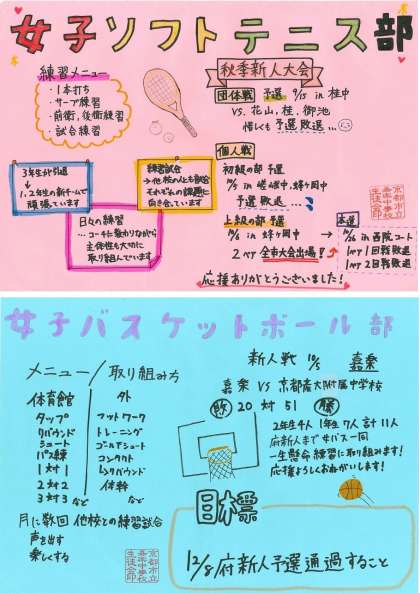 女子ソフトテニス部
練習メニュー
・1本打ち
・サーブ練習
・前衛、後衛練習
・試合練習
秋季新人大会
団体戦 予選 9/15 in 桂中
VS. 花山、桂、御池
惜しくも予選敗退…
個人戦
初級の部 予選
in 嵯峨中、蜂ヶ岡中
予選敗退…
上級の部 予選
10/6 in 蜂ヶ岡中
2ペア 全市大会出場!
本選
10/26 in 西院コート
1ペア 1回戦敗退
1ペア 2回戦敗退
応援ありがとうございました!
3年生が引退
↓
1、2年生の新チームで
頑張っています
練習試合
→他校の人とも試合
それぞれの課題に
向き合っています
日々の練習
…コーチに教わりながら
主体性も大切に
取り組んでいます
京都市立
嘉楽中学校
生徒会印
女子バスケットボール部
メニュー/取り組み方
体育館
タップ
リバウンド
シュート
パス練
1対1
2対2
3対3 など
外
フットワーク
トレーニング
ゴールデシュート
コンタクト
レッグバウンド
体幹
など
月に数回 他校との練習試合
声を出す
楽しくする
京都市立
嘉楽中学校
生徒会印
新人戦 10/5 嘉楽
嘉楽 VS 京都産大附属中学校
敗 20 対 51 勝
2年生4人 1年生7人 計11人
府新人までチバスー同
一生懸命練習に取り組みます!
応援よろしくおねがいします!
目標
12/8府新人予選通過すること